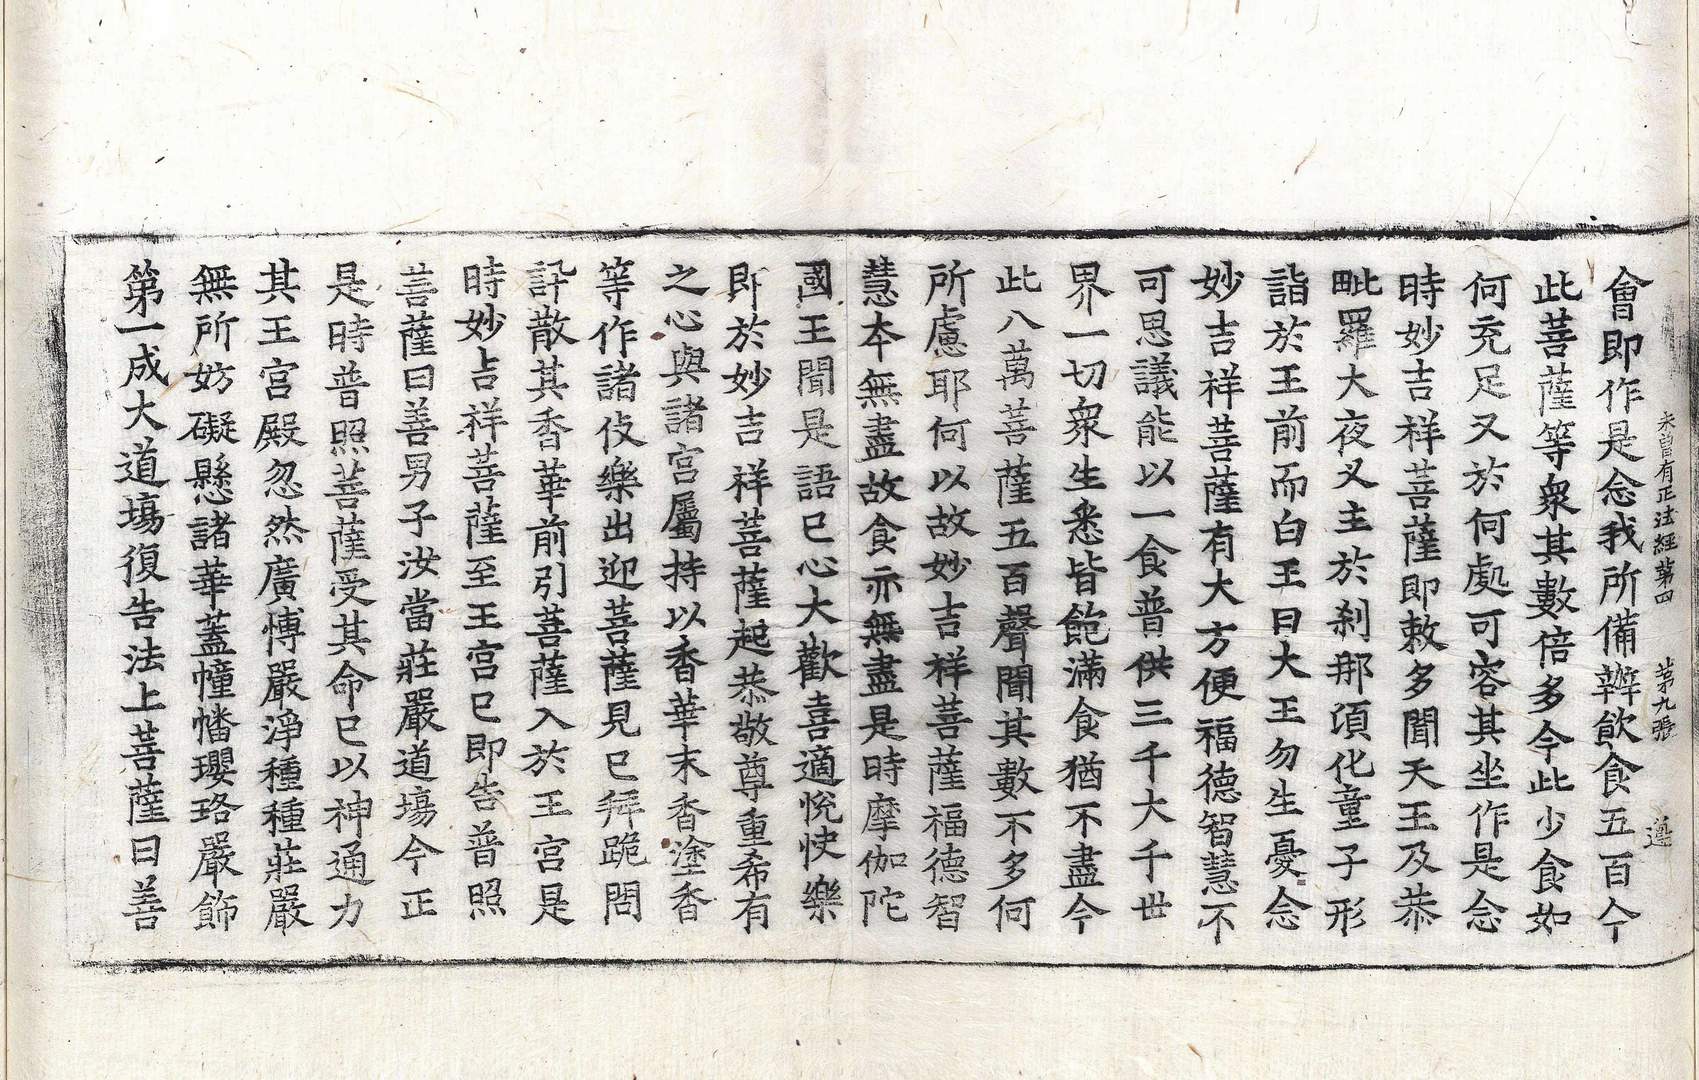 未曾有正法經第四 第九張 遵
會即作是念我所備辦飮食五百今
此菩薩等衆其數倍多今此少食如
何充足又於何處可容其坐作是念
時妙吉祥菩薩即敕多聞天王及恭
毗羅大夜叉主於刹那頃化童子形
詣於王前而白王曰大王勿生憂念
妙吉祥菩薩有大方便福德智慧不
可思議能以一食普供三千大千世
界一切衆生悉皆飽滿食猶不盡今
此八萬菩薩五百聲聞其數不多何
所慮耶何以故妙吉祥菩薩福德智
慧本無盡故食亦無盡是時摩伽陀
國王聞是語已心大歡喜適悅快樂
即於妙吉祥菩薩起恭敬尊重希有
之心與諸宮屬持以香華末香塗香
等作諸伎樂出迎菩薩見已拜跪問
訊散其香華前引菩薩入於王宮是
時妙吉祥菩薩至王宮已即告普照
菩薩曰善男子汝當莊嚴道場今正
是時普照菩薩受其命已以神通力
其王宮殿忽然廣博嚴淨種種莊嚴
無所妨礙懸諸華蓋幢幡瓔珞嚴飾
第一成大道場復告法上菩薩曰善